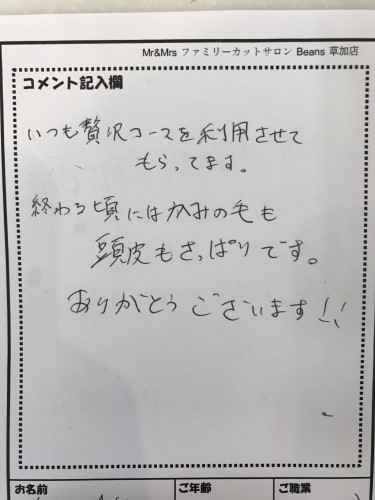 Mr&Mrs ファミリーカットサロン Beans 草加店
コメント記入欄
いつも贅沢コースを利用させて
もらってます。
終わる頃にはかみの毛も
頭皮もさっぱりです。
ありがとうございます!!
お名前
ご年齢
ご職業